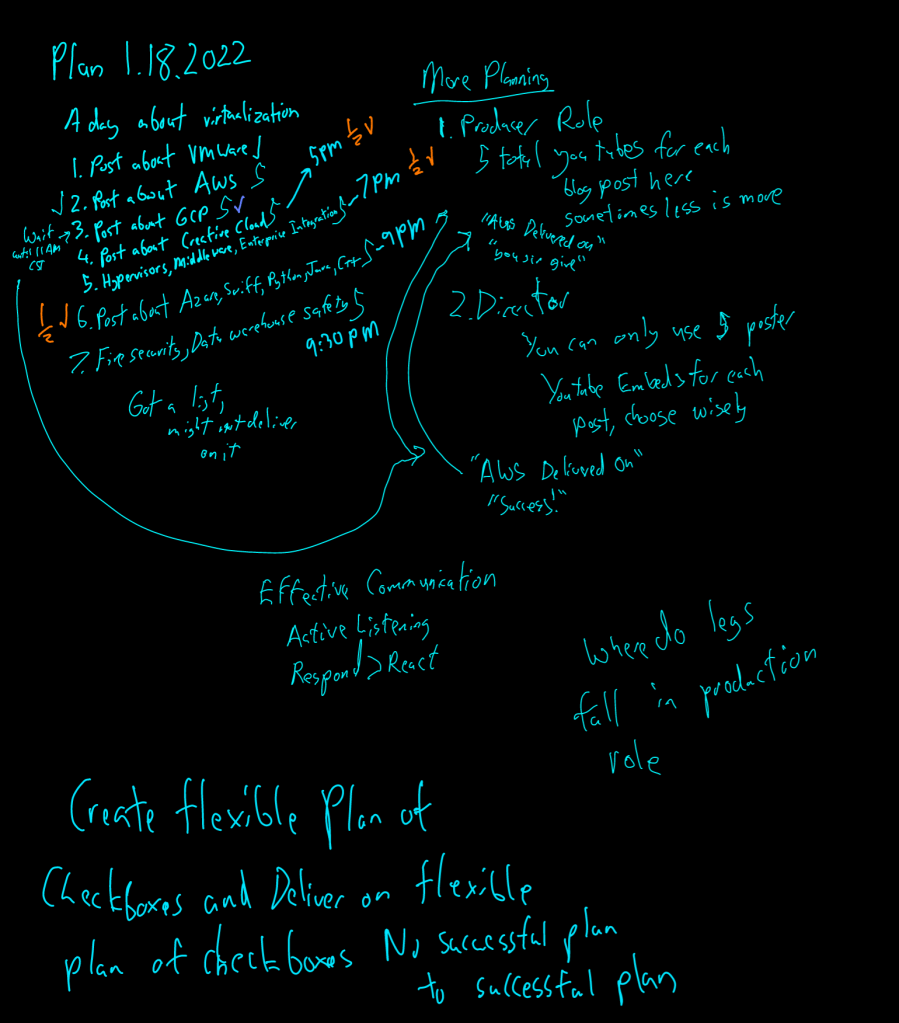 Plan 1.18.2022
A day about virtualization
1. Post about VMWare √
√ 2. Post about AWS 5
Wait until 11 AM CST → 3. Post about GCP 5 √
4. Post about Creative Cloud 5 → 5pm ½ √
5. Hypervisors, Middleware, Enterprise Integration 5 - 7pm ½ √
½ √ 6. Post about Azure, Swift, Python, Java, C++ 5 - 9pm
7. Fire security, Data warehouse safety 5
9:30pm
Got a list,
might not deliver
on it
More Planning
1. Producer Role
5 total youtubes for each
blog post here
sometimes less is more
"AWS Delivered on"
"you give"
2. Director
You can only use 5 poster
Youtube Embeds for each
post, choose wisely
"AWS Delivered On"
"Success!"
Effective Communication
Active Listening
Respond > React
Where do legs
fall in production
role
Create flexible Plan of
Checkboxes and Deliver on flexible
plan of checkboxes No successful plan
to successful plan